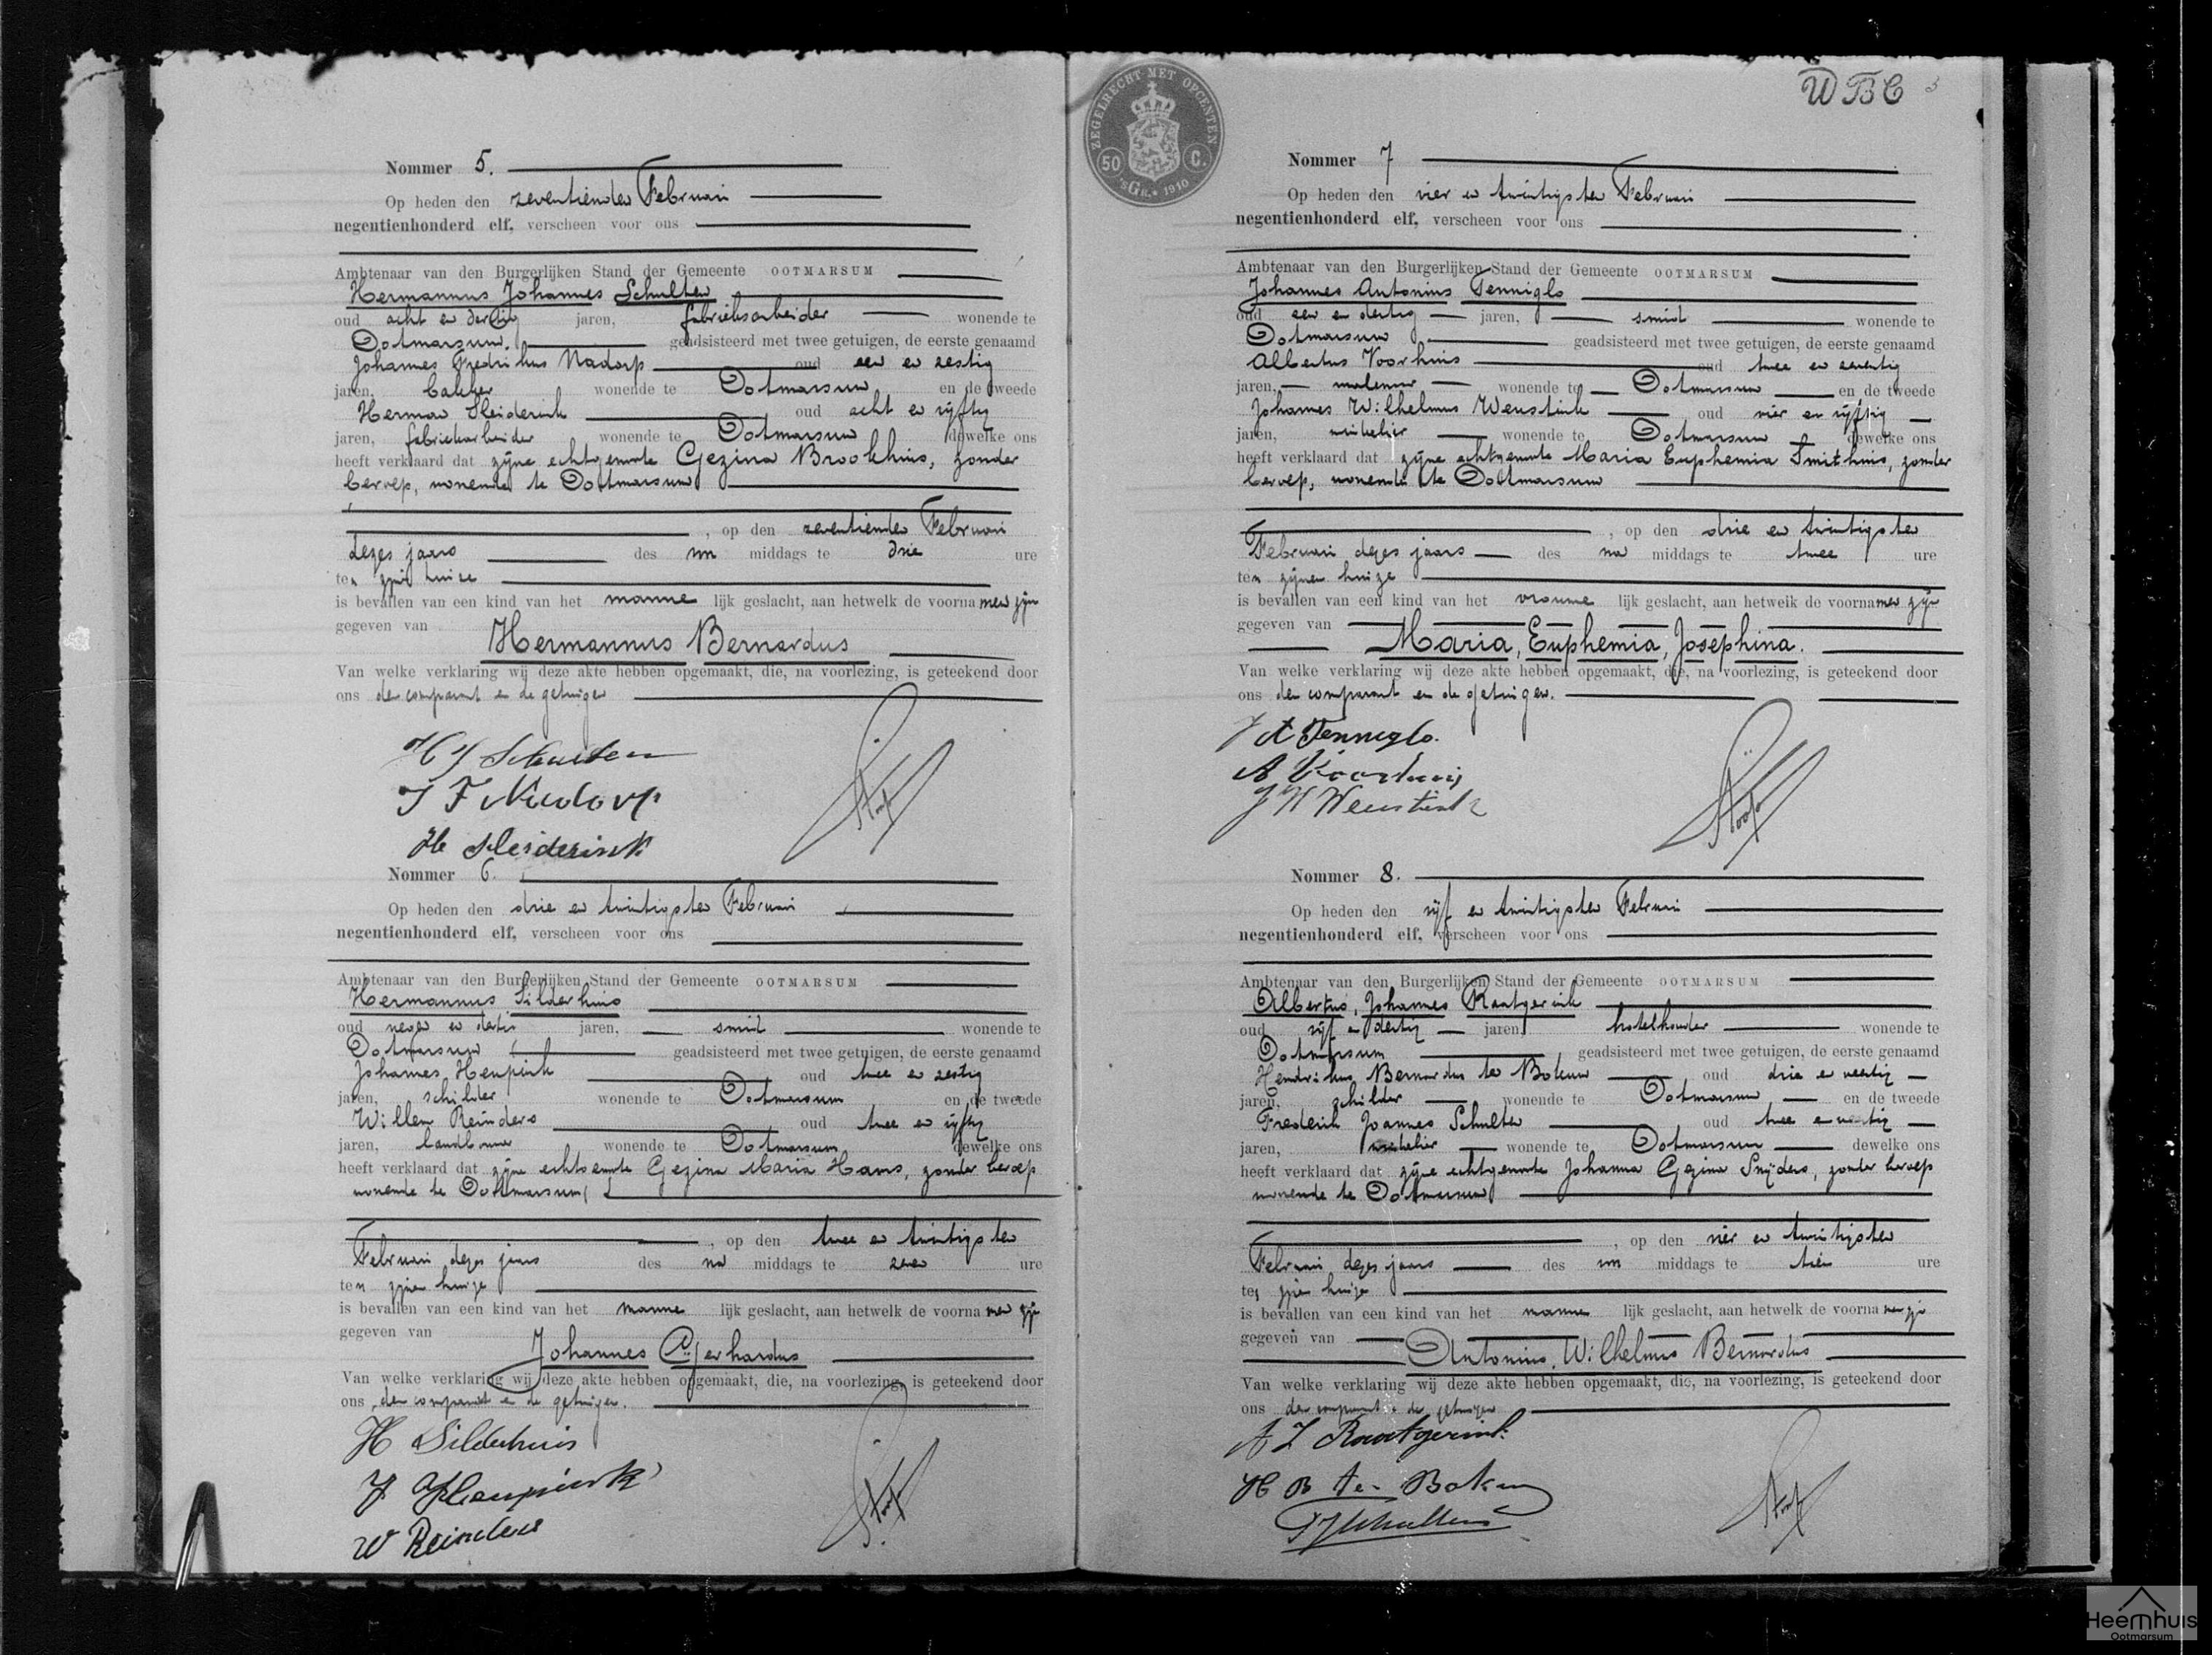 Nommer 5.
Op heden den zeventienden Februari
negentienhonderd elf, verscheen voor ons
Ambtenaar van den Burgerlijken Stand der Gemeente OOTMARSUM
Hermannus Johannes Schulten
oud acht en dertig jaren, fabrieksarbeider wonende te
Ootmarsum, geadsisteerd met twee getuigen, de eerste genaamd
Johannes Fredrikus Nadorp oud een en zestig
jaren, bakker wonende te Ootmarsum en de tweede
Herman Sleiderink oud acht en vijftig
jaren, fabriekarbeider wonende te Ootmarsum dewelke ons
heeft verklaard dat zijne echtgenoote Gezina Brookhuis, zonder
beroep, wonende te Ootmarsum
, op den zeventienden Februari
dezes jaars des vm middags te drie ure
ten zijnen huize
is bevallen van een kind van het manne lijk geslacht, aan hetwelk de voorna men zijn
gegeven van
Hermannus Bernardus
Van welke verklaring wij deze akte hebben opgemaakt, die, na voorlezing, is geteekend door
ons den comparant en de getuigen
H J Schulten
J F Nadorp
H Sleiderink
Nommer 6.
Op heden den drie en twintigsten Februari
negentienhonderd elf, verscheen voor ons
Ambtenaar van den Burgerlijken Stand der Gemeente OOTMARSUM
Hermannus Silderhuis
oud negen en dertig jaren, smid wonende te
Ootmarsum geadsisteerd met twee getuigen, de eerste genaamd
Johannes Heupink oud twee en zestig
jaren, schilder wonende te Ootmarsum en de tweede
Willem Reinders oud twee en vijftig
jaren, landbouwer wonende te Ootmarsum dewelke ons
heeft verklaard dat zijne echtgenoote Gezina Maria Hams, zonder beroep
wonende te Ootmarsum
, op den twee en twintigsten
Februari dezes jaars des na middags te zeven ure
ten zijnen huize
is bevallen van een kind van het manne lijk geslacht, aan hetwelk de voorna men zijn
gegeven van
Johannes Gerhardus
Van welke verklaring wij deze akte hebben opgemaakt, die, na voorlezing, is geteekend door
ons den comparant en de getuigen.
H Silderhuis
J Heupink
W Reinders
ZEGELRECHT MET OPCENTEN
50 C.
'sGR. 1910
WBC
Nommer 7
Op heden den vier en twintigsten Februari
negentienhonderd elf, verscheen voor ons
Ambtenaar van den Burgerlijken Stand der Gemeente OOTMARSUM
Johannes Antonius Tenniglo
oud een en dertig jaren, smid wonende te
Ootmarsum geadsisteerd met twee getuigen, de eerste genaamd
Albertus Voorhuis oud twee en zeventig
jaren, molenaar wonende te Ootmarsum en de tweede
Johannes Wilhelmus Weustink oud vier en vijftig
jaren, winkelier wonende te Ootmarsum dewelke ons
heeft verklaard dat zijne echtgenoote Maria Euphemia Smithuis, zonder
beroep, wonende te Ootmarsum
, op den drie en twintigsten
Februari dezes jaars des na middags te twee ure
ten zijnen huize
is bevallen van een kind van het vrouwe lijk geslacht, aan hetwelk de voornamen zijn
gegeven van
Maria, Euphemia, Josephina.
Van welke verklaring wij deze akte hebben opgemaakt, die, na voorlezing, is geteekend door
ons den comparant en de getuigen.
J A Tenniglo.
A Voorhuis
J W Weustink
Nommer 8.
Op heden den vijf en twintigsten Februari
negentienhonderd elf, verscheen voor ons
Ambtenaar van den Burgerlijken Stand der Gemeente OOTMARSUM
Albertus, Johannes Raatgerink
oud vijf en dertig jaren, hotelhouder wonende te
Ootmarsum geadsisteerd met twee getuigen, de eerste genaamd
Hendrikus Bernardus ten Boken oud drie en veertig
jaren, schilder wonende te Ootmarsum en de tweede
Frederik Joannes Schulten oud twee en veertig
jaren, winkelier wonende te Ootmarsum dewelke ons
heeft verklaard dat zijne echtgenoote Johanna Gezina Snijders, zonder beroep
wonende te Ootmarsum
, op den vier en twintigsten
Februari dezes jaars des vm middags te tien ure
ten zijnen huize
is bevallen van een kind van het manne lijk geslacht, aan hetwelk de voorna men zijn
gegeven van
Antonius, Wilhelmus Bernardus
Van welke verklaring wij deze akte hebben opgemaakt, die, na voorlezing, is geteekend door
ons den comparant en de getuigen
A J Raatgerink.
H B te Boken
F J Schulten
Heemhuis
Ootmarsum